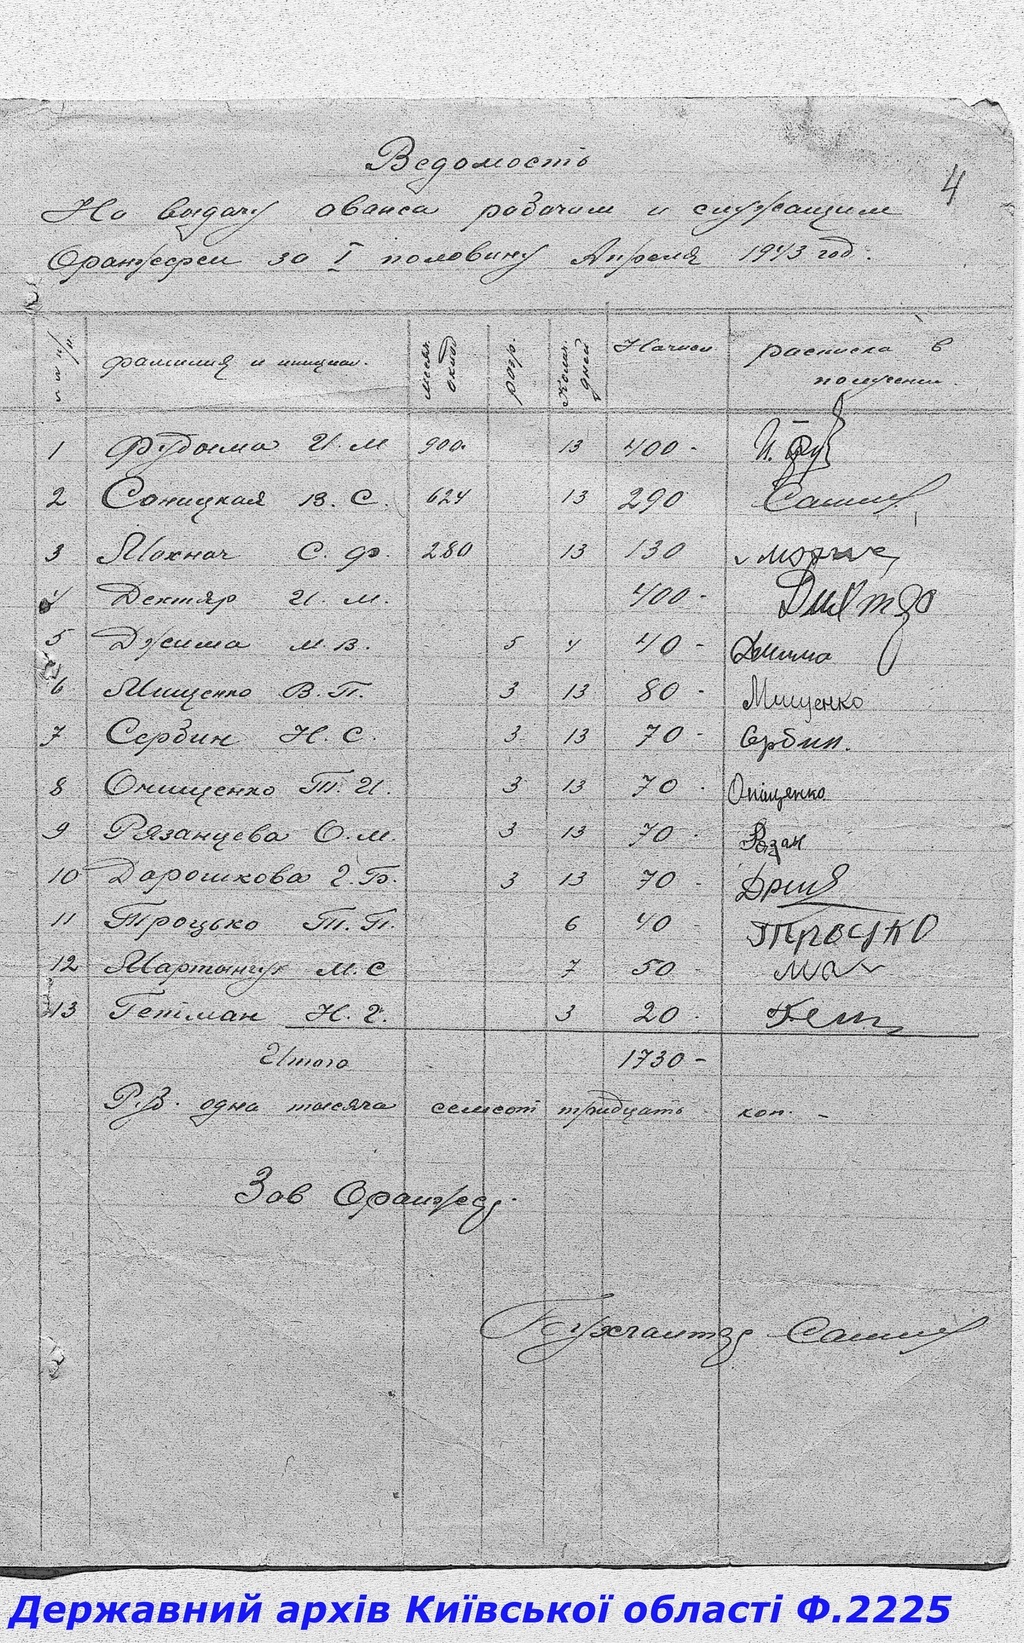 Ведомость
4
На выдачу аванса рабочим и служащим
Оранжереи за I половину Апреля 1943 год.
№№ п/п. фамилия и инициал. месяч. оклад разр. Колич. дней Начисл. расписка в получении.
1 Фудыма И. М 900. 13 400 - И. Фуд
2 Саницкая В. С. 624 13 290 Саниц
3 Махнач С. Ф. 280 13 130
4 Дехтяр И. М. 400 -
5 Джима М. В. 5 4 40 - Джима
6 Мищенко В. П. 3 13 80 - Мищенко
7 Сербин Н. С. 3 13 70 - Сербин.
8 Онищенко Т. И. 3 13 70 - Оніщенко
9 Рязанцева О. М. 3 13 70 - Рязан
10 Дарошкова Г. Б. 3 13 70 -
11 Троцько Т. П. 6 40 - Троцко
12 Мартынчук М. С 7 50 -
13 Гетман Н. Г. 3 20 - Гетм
Итого 1730 -
Р.в. одна тысяча семсот тридцать коп. -
Зав Оранжер.
Бухгалтер Саниц
Державний архів Київської області Ф.2225